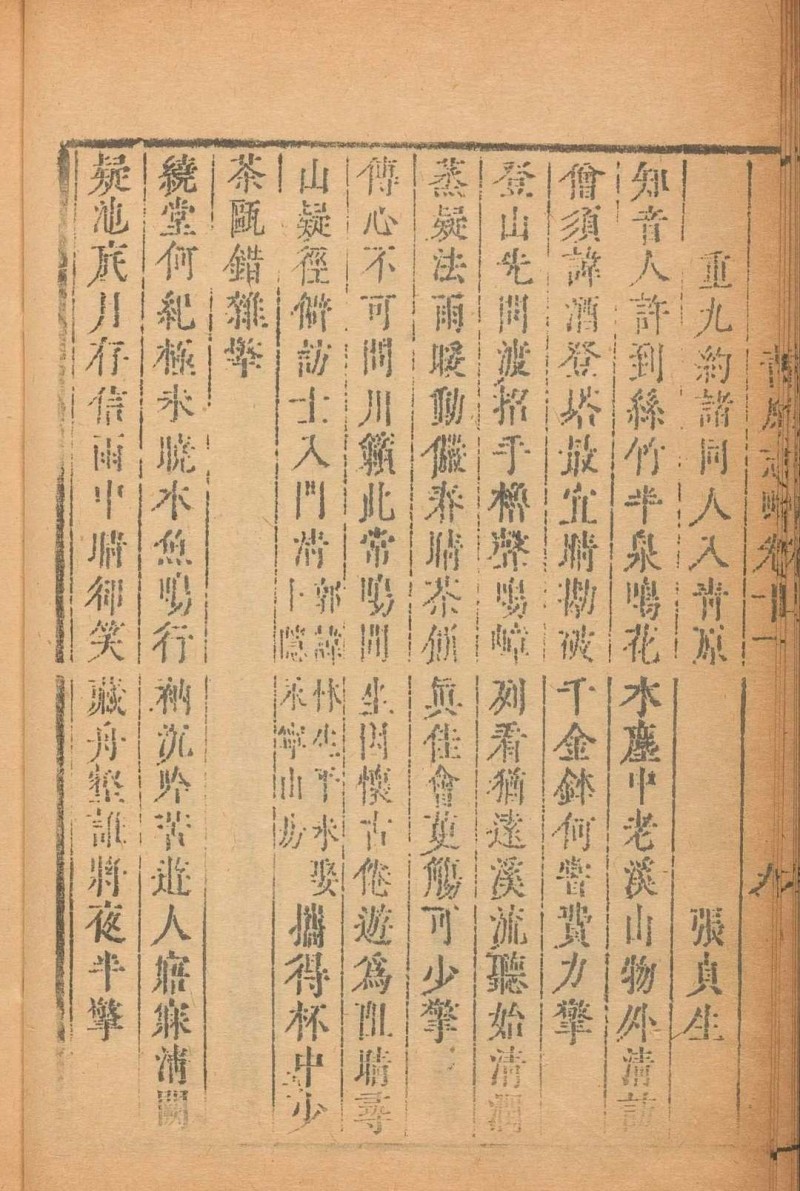 青原志略卷十一 九
重九約諸同人入青原 張貞生
知音人許到絲竹半泉鳴花木塵中老溪山物外清訪
僧須諱酒登塔最宜晴勘破千金鉢何嘗費力擎
登山先問渡招手櫓聲鳴嶂列看猶遠溪流聽始清澗
蒸疑法雨暖動儼春晴茶傾眞佳會萸觴可少擎
傳心不可問川籟此常鳴閒坐因懷古倦遊爲阻晴尋
山疑徑僻訪士入門清郭諱林生隱永寧山房攜得杯中少
茶甌錯雜擎
繞堂何紀極未曉木魚鳴行衲沉吟苦遊人寤寐清闌
疑池底月存信雨中晴卻笑藏舟壑誰將夜半擎